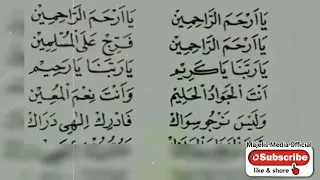 يَا اَرْحَمَ الرَّاحِمِيْنَ يَا اَرْحَمَ الرَّاحِمِيْنَ
يَا اَرْحَمَ الرَّاحِمِيْنَ فَرِّجْ عَلَى الْمُسْلِمِيْنَ
يَا رَبَّنَا يَا كَرِيْم يَا رَبَّنَا يَا رَحِيْم
اَنْتَ الْجَوَادُ الْحَلِيْم وَاَنْتَ نِعْمَ الْمُعِيْن
وَلَيْسَ نَرْجُوْ سِوَاكَ فَادْرِكْ اِلٰهِيْ دَرَاكَ
Majelis Media Official
Subscribe
like & share